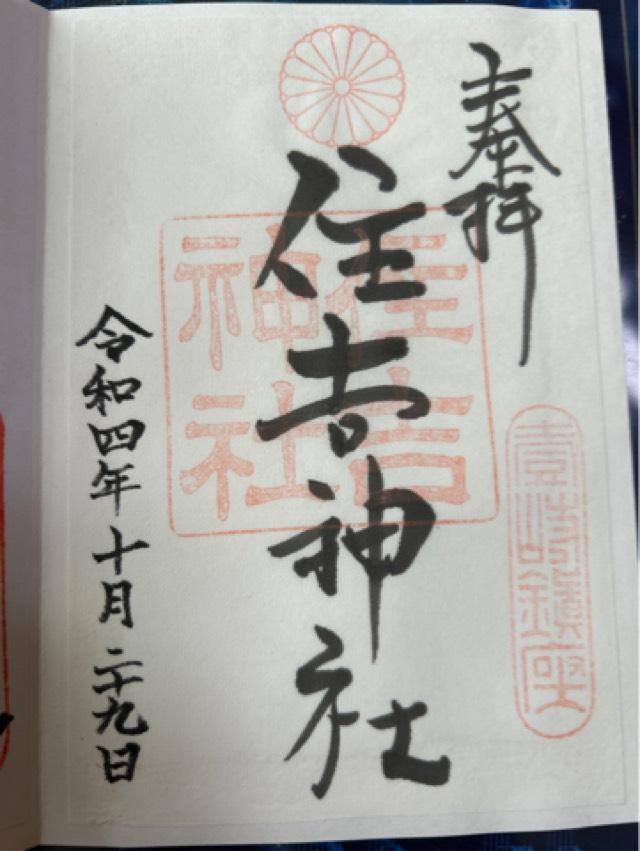 奉拝
壹岐鎮座
住吉神社
住吉神社
令和四年十月二十九日